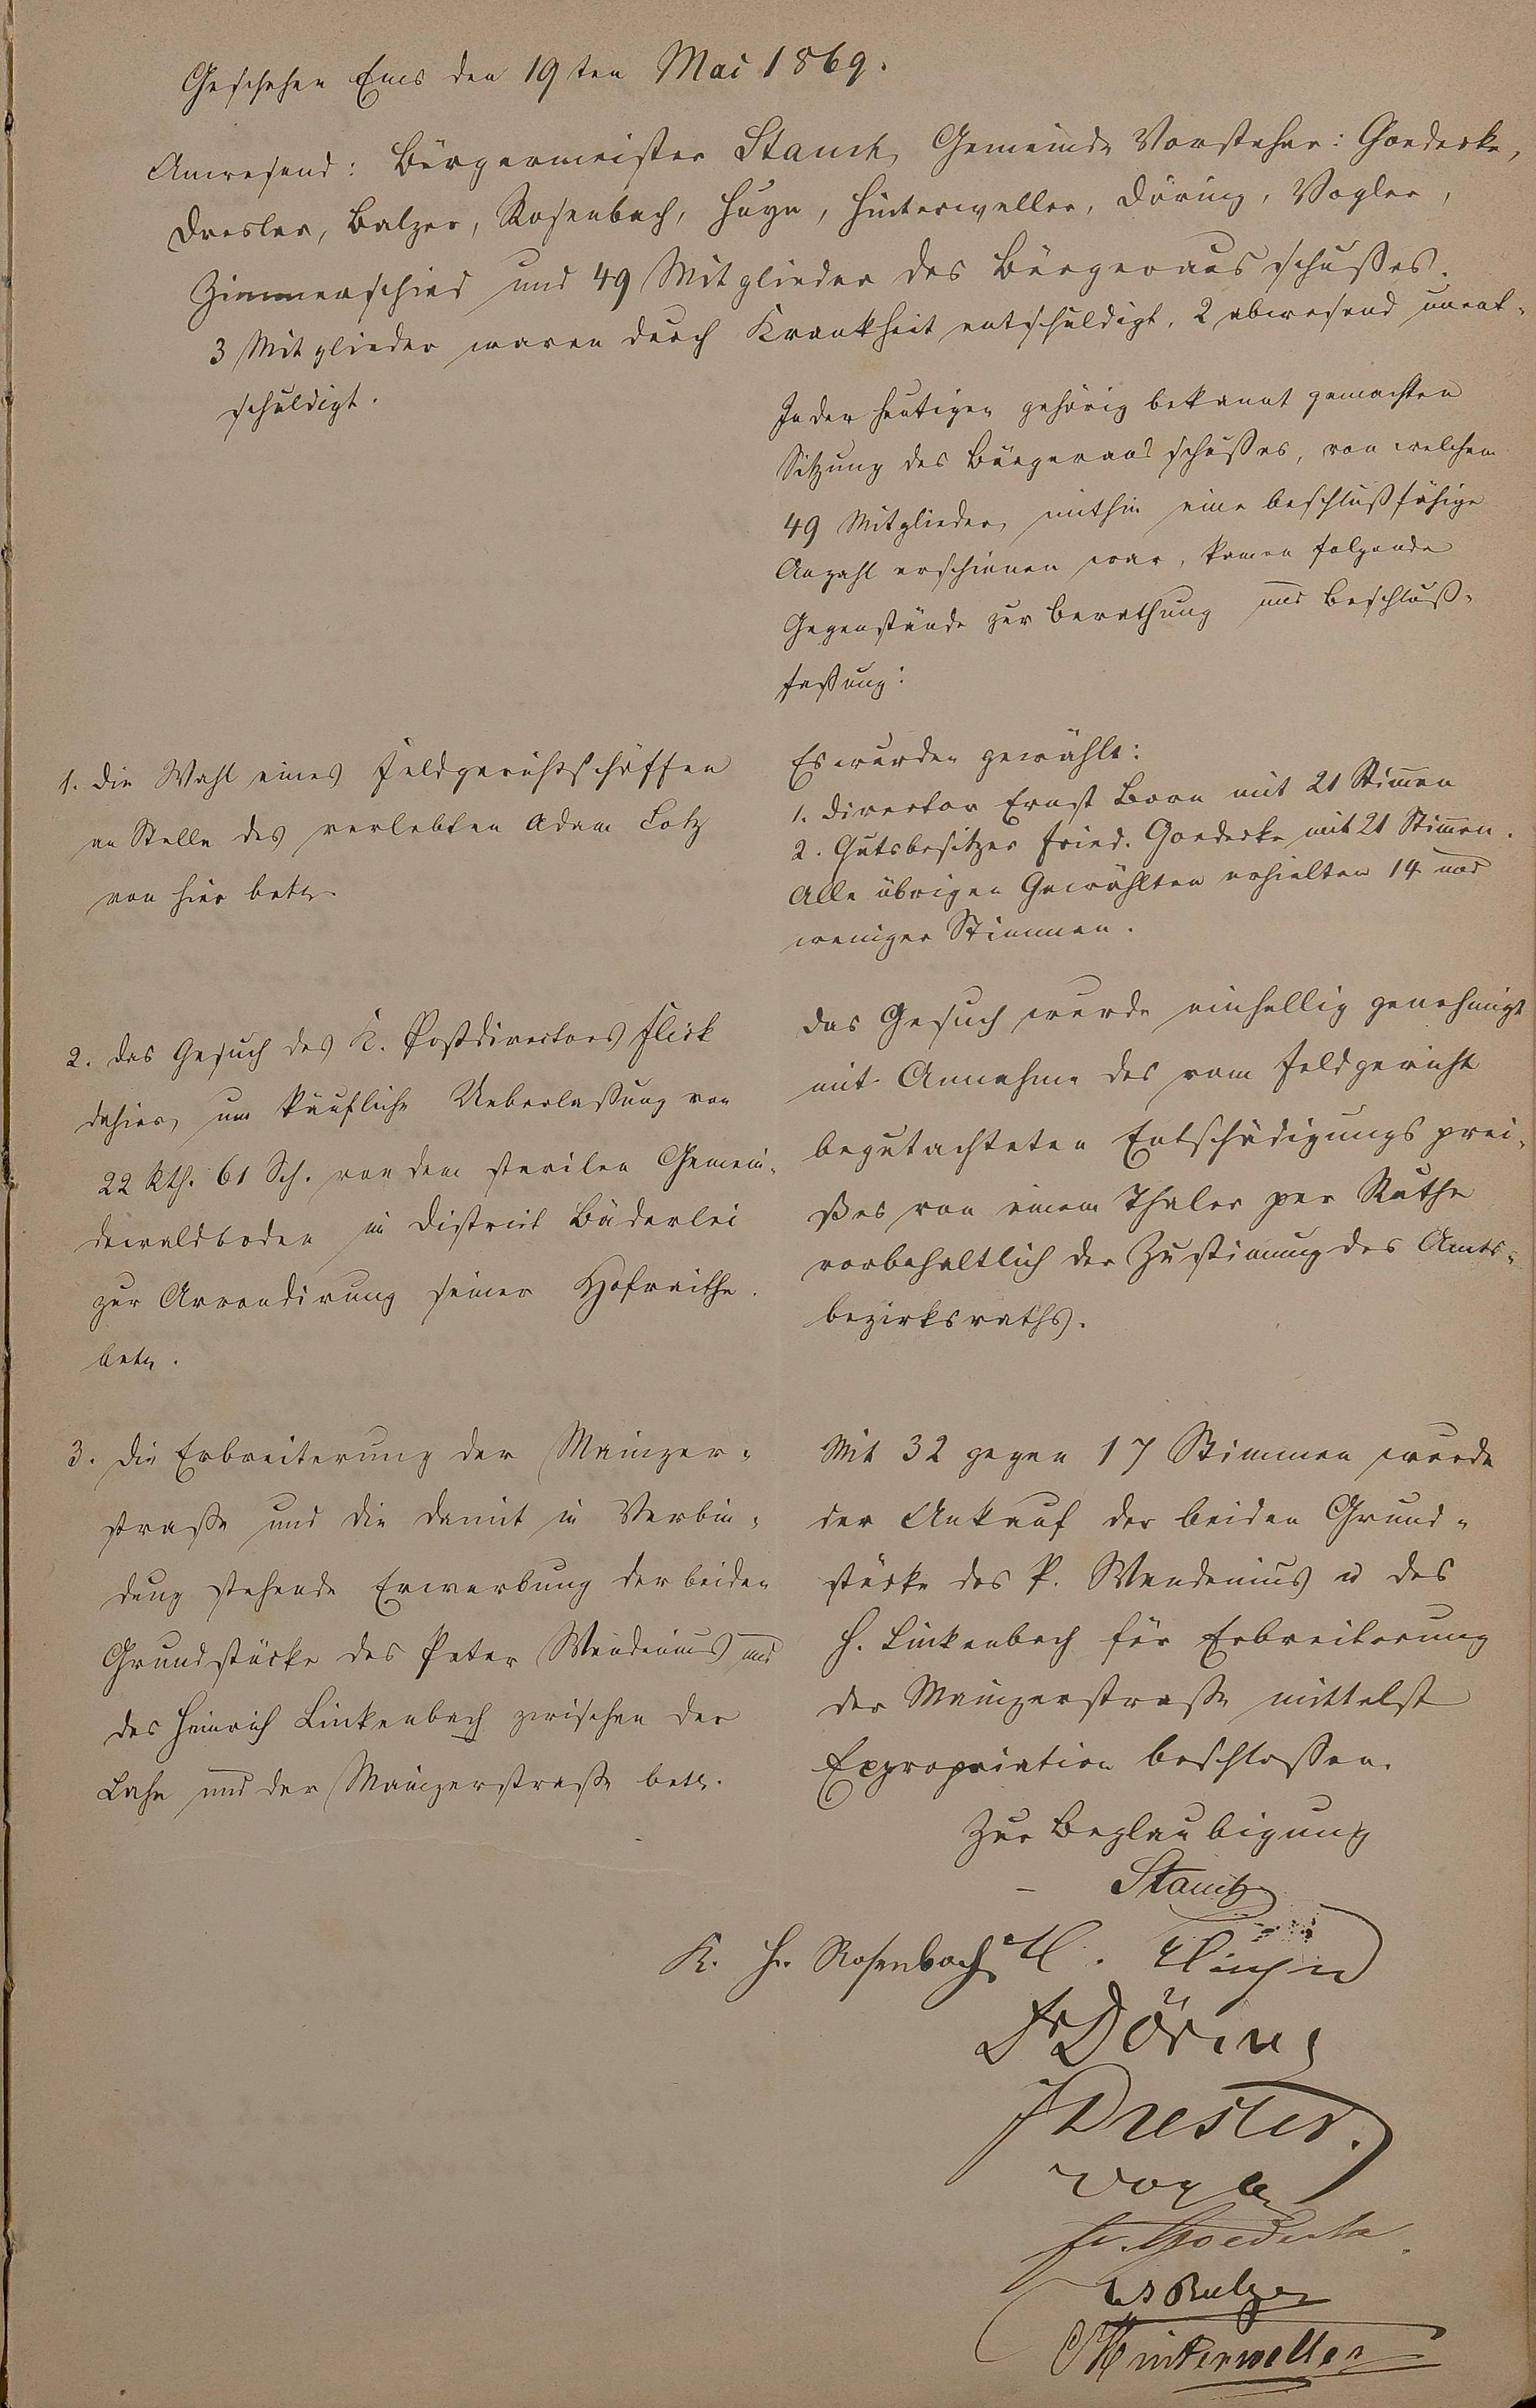 Geschehen Ems den 19ten Mai 1869.
Anwesend: Bürgermeister Stauch, Gemeinde Vorsteher: Goedecke,
Dresler, Balzer, Rosenbach, Huyn, Hinterweller, Döring, Vogler,
Zimmerschied und 49 Mitglieder des Bürgerausschußes.
3 Mitglieder waren durch Krankheit entschuldigt, 2 abwesend unent-
schuldigt.
In der heutigen gehörig bekannt gemachten
Sitzung des Bürgerausschußes, von welchem
49 Mitglieder, mithin eine beschlußfähige
Anzahl erschienen war, kamen folgende
Gegenstände zur Berathung und Beschluß-
faßung:
1. die Wahl eines Feldgerichtsschöffen
an Stelle des verlebten Adam Lotz
von hier betr.
Es wurden gewählt:
1. Director Ernst Born mit 21 Stimen
2. Gutsbesitzer Fried. Goedecke mit 21 Stimen.
Alle übrigen Gewählten erhielten 14 und
weniger Stimmen.
2. das Gesuch des K. Postdirectors Flick
dahier, um käufliche Ueberlaßung von
22 Rth. 61 Sch. von dem sterilen Gemein-
dewaldboden im District Bäderlei
zur Arrondirung seiner Hofraithe
betr.
das Gesuch wurde einhellig genehmigt
mit Annahme des vom Feldgericht
begutachteten Entschädigungsprei-
ßes von einem Thaler per Ruthe
vorbehaltlich der Zustimung des Amts-
bezirksraths.
3. die Erbreiterung der Mainzer-
straße und die damit in Verbin-
dung stehende Erwerbung der beiden
Grundstücke des Peter Wendenius und
des Heinrich Linkenbach zwischen der
Lahn und der Mainzerstraße betr.
Mit 32 gegen 17 Stimmen wurde
der Ankauf der beiden Grund-
stücke des P. Wendenius u des
H. Linkenbach für Erbreiterung
der Mainzerstraße mittelst
Expropriation beschloßen.
Zur Beglaubigung
Stauch
K. H. Rosenbach H. Huyn
Fr Döring
J Dresler.
Vogler
Fr. Goedecke
Balzer
Hinterweller